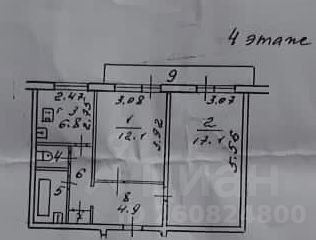 4 этаже
9
2.47 3.08 3.07
3.75
6.8
1
12.1
3.92
2
17.1
5.56
4
6
5
8
4.9
7
циан